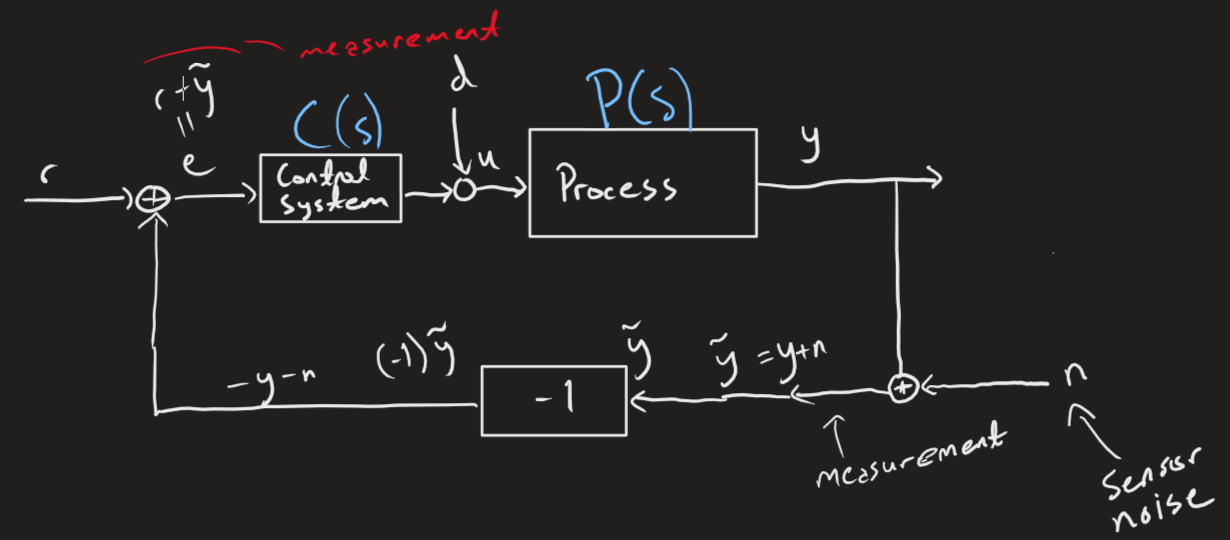 measurement
r + ỹ
||
e
r
C(s)
Control
system
d
u
P(s)
Process
y
-y-n
(-1)ỹ
-1
ỹ
ỹ = y+n
+
n
measurement
sensor
noise